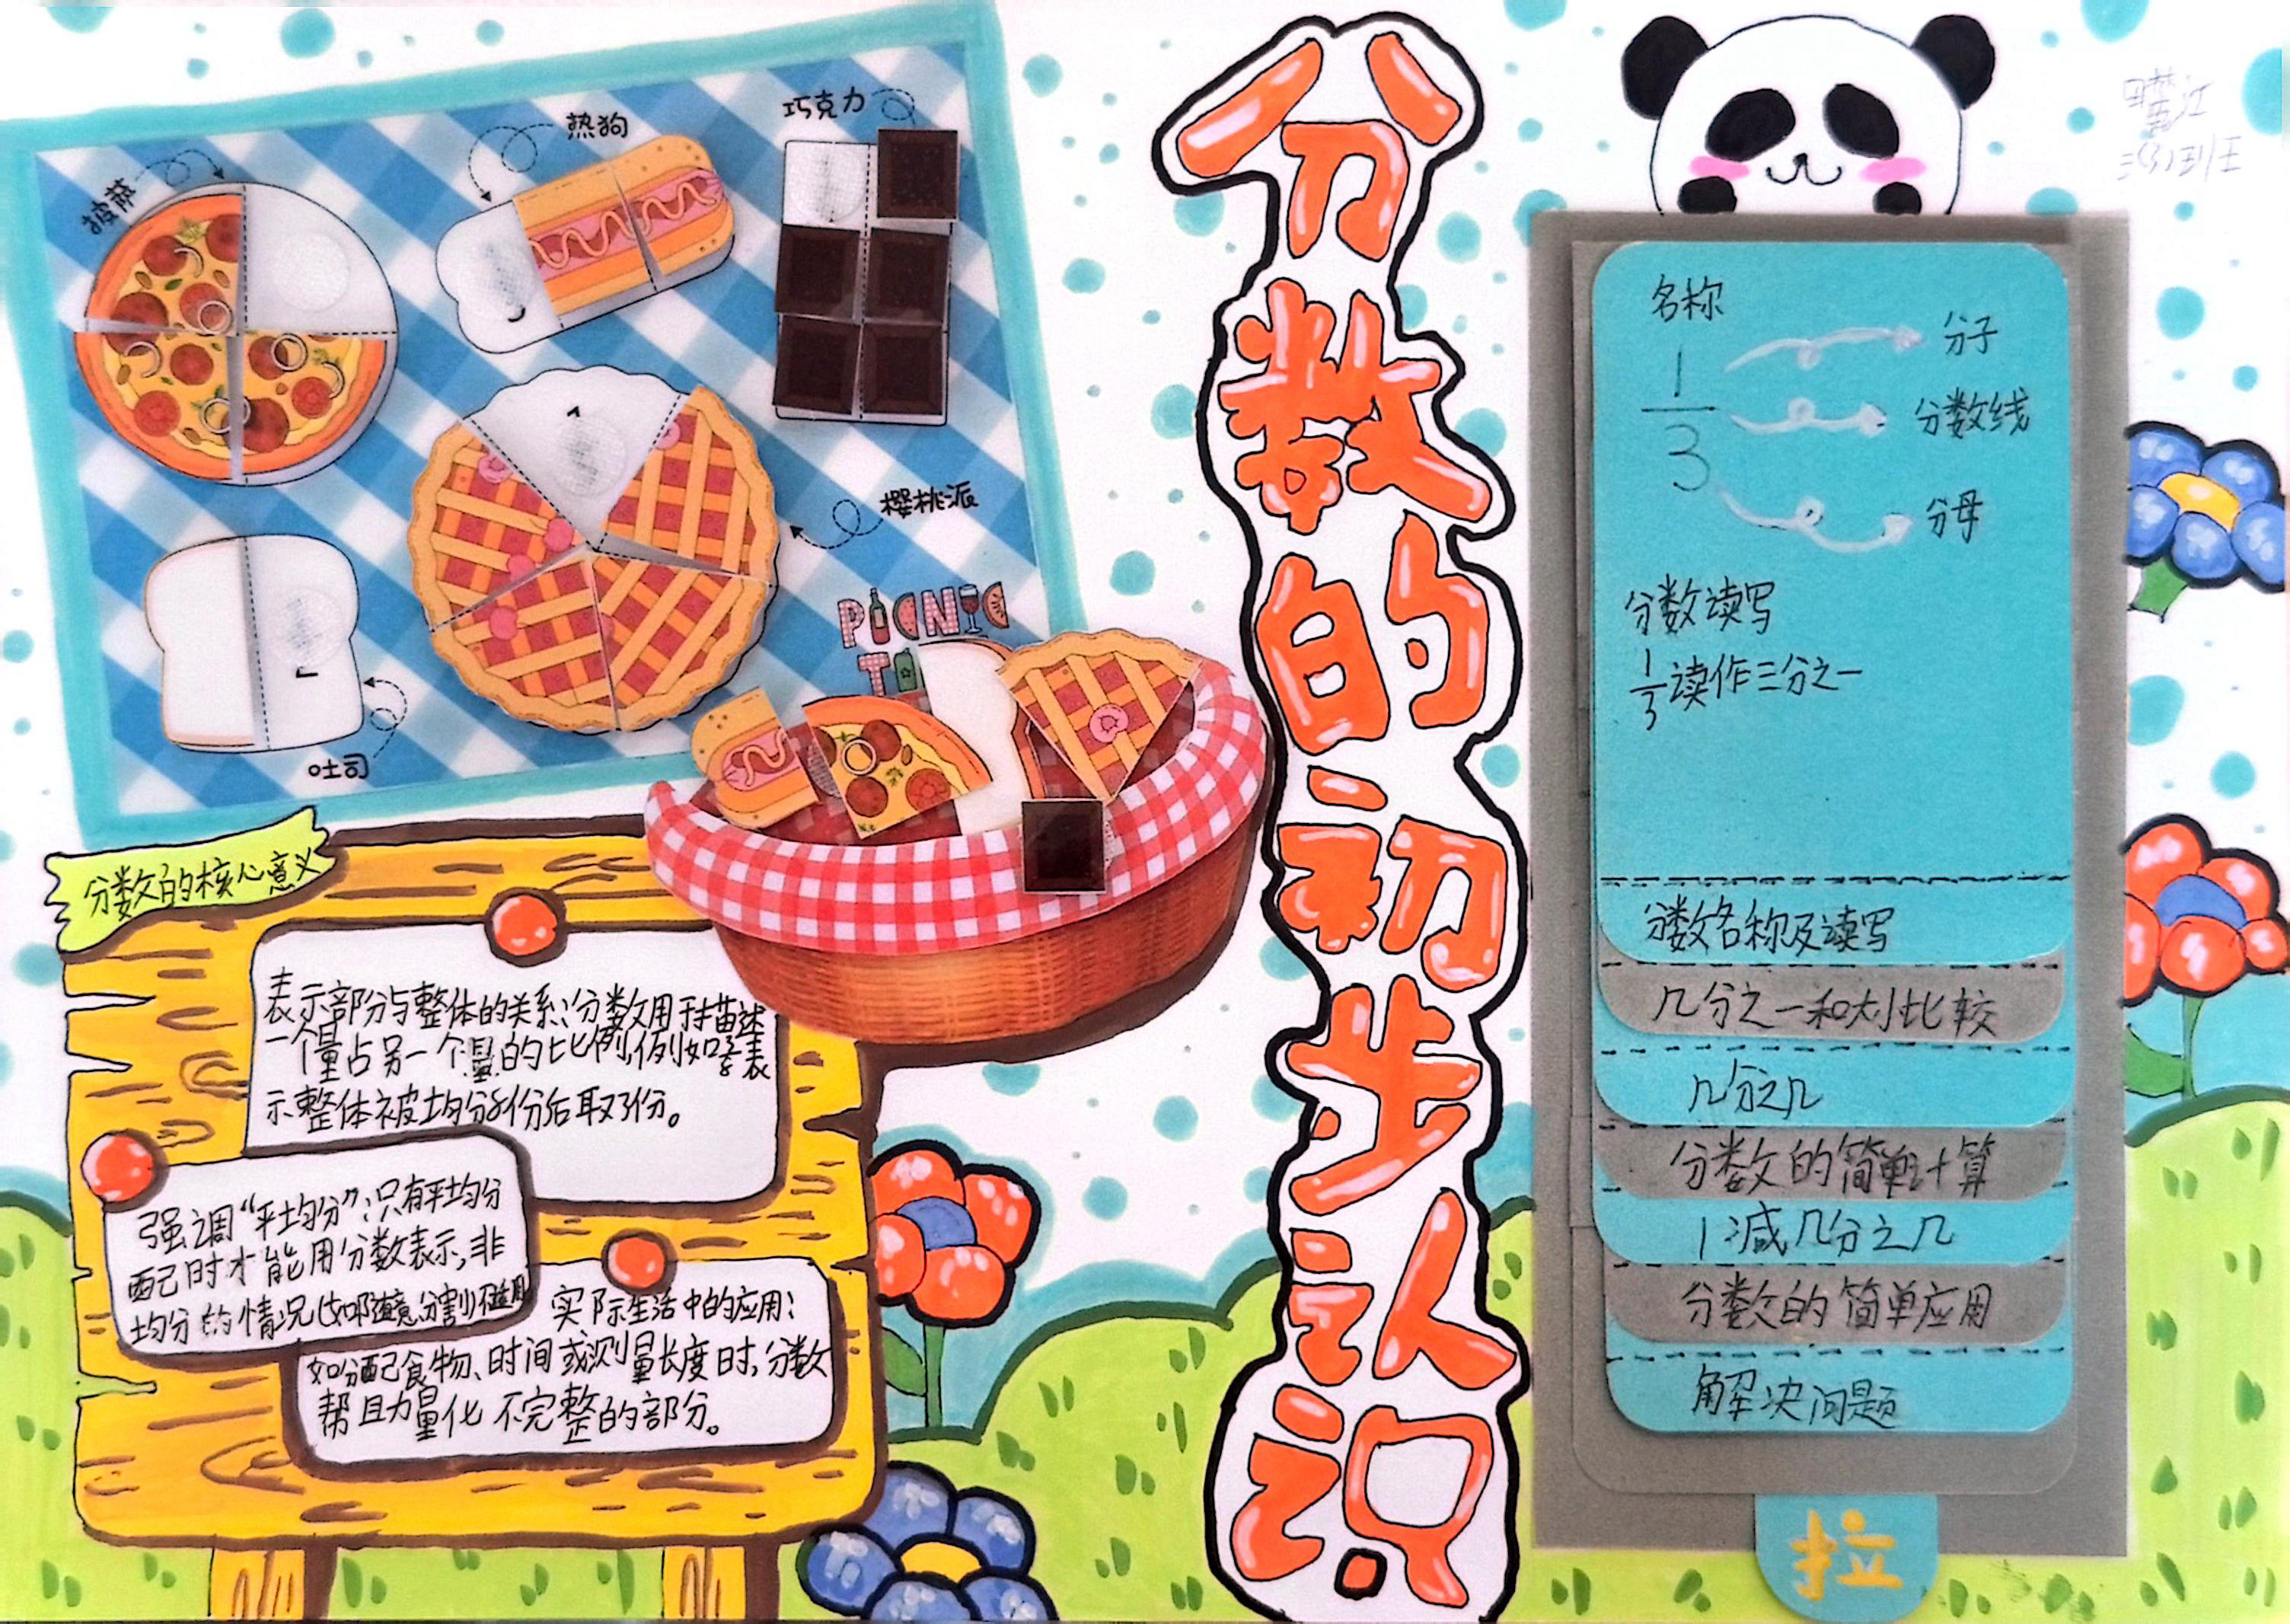 披萨
热狗
巧克力
樱桃派
吐司
PICNIC
分数的初步认识
分数的核心意义
表示部分与整体的关系:分数用于描述
一个量占另一个量的比例,例如3/8表
示整体被均分8份后取3份。
强调“平均分”:只有平均分
配时才能用分数表示,非
均分的情况(如随意分割)不适用
实际生活中的应用:
如分配食物、时间或测量长度时,分数
帮助量化不完整的部分。
三(3)班王
名称
1/3
分子
分数线
分母
分数读写
1/3读作三分之一
分数名称及读写
几分之一和大小比较
几分之几
分数的简单计算
1减几分之几
分数的简单应用
解决问题
拉